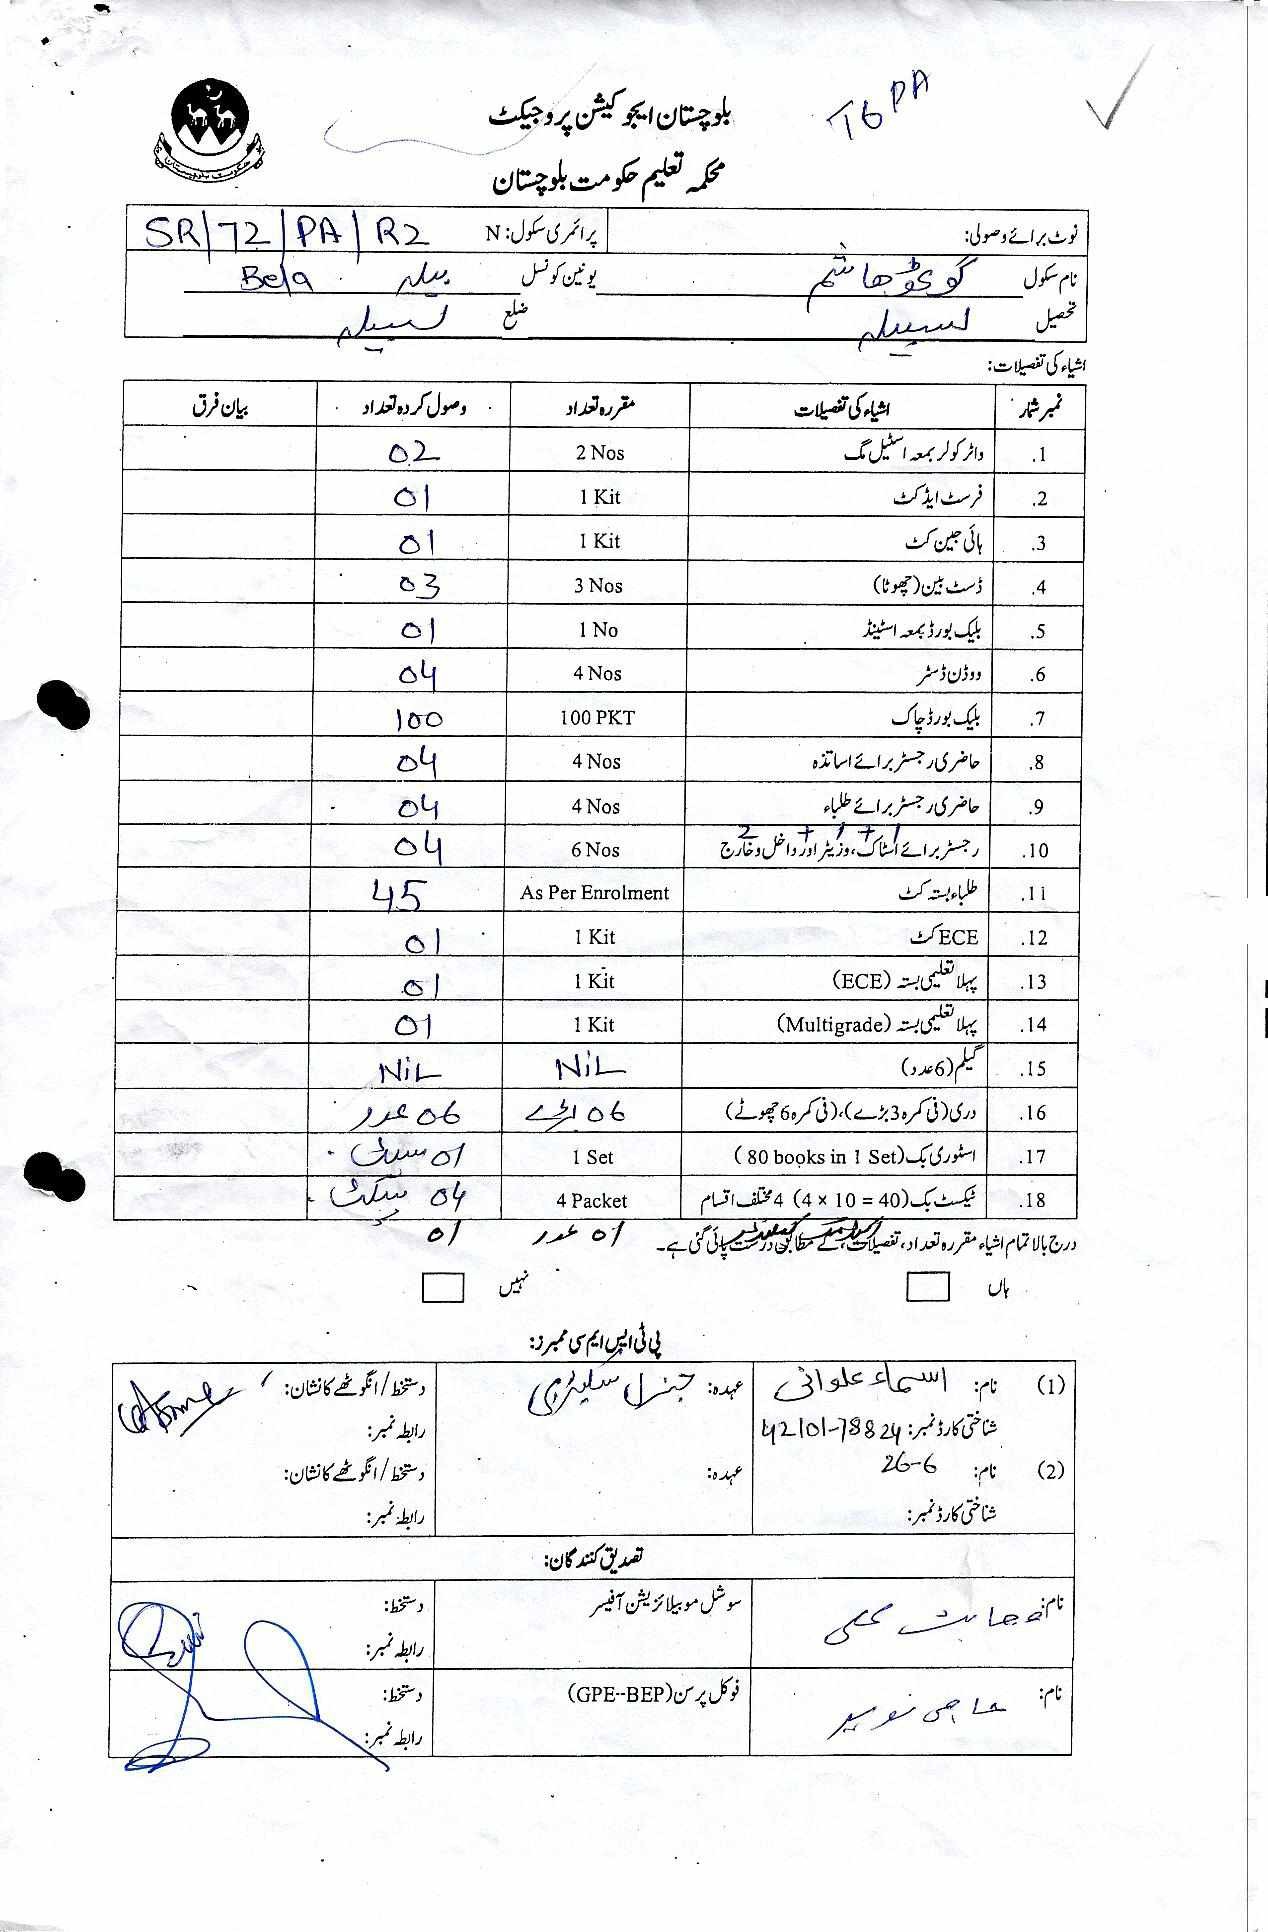 T6 PA
بلوچستان ایجوکیشن پروجیکٹ
محکمہ تعلیم حکومت بلوچستان
نوٹ برائے وصولی: پرائمری سکول: N SR/72/PA/R2
نام سکول گوٹھ ھاشم یونین کونسل بیلہ Bela
تحصیل لسبیلہ ضلع لسبیلہ
اشیاء کی تفصیلات:
نمبر شمار اشیاء کی تفصیلات مقررہ تعداد وصول کردہ تعداد بیان فرق
1. واٹر کولر بمعہ اسٹیل مگ 2 Nos 02
2. فرسٹ ایڈ کٹ 1 Kit 01
3. ہائی جین کٹ 1 Kit 01
4. ڈسٹ بین (چھوٹا) 3 Nos 03
5. بلیک بورڈ بمعہ اسٹینڈ 1 No 01
6. ووڈن ڈسٹر 4 Nos 04
7. بلیک بورڈ چاک 100 PKT 100
8. حاضری رجسٹر برائے اساتذہ 4 Nos 04
9. حاضری رجسٹر برائے طلباء 4 Nos 04
2 + 1 + 1
10. رجسٹر برائے اسٹاک، وزیٹر اور داخل و خارج 6 Nos 04
11. طلباء بستہ کٹ As Per Enrolment 45
12. ECE کٹ 1 Kit 01
13. پہلا تعلیمی بستہ (ECE) 1 Kit 01
14. پہلا تعلیمی بستہ (Multigrade) 1 Kit 01
15. گیلم (6 عدد) NiL NiL
16. دری (فی کمرہ 3 بڑے)، (فی کمرہ 6 چھوٹے) 06 بڑے 06 عدد
17. اسٹوری بک (80 books in 1 Set) 1 Set 01 سیٹ
18. ٹیکسٹ بک (4 x 10 = 40) 4 مختلف اقسام 4 Packet 04 پیکٹ
01 عدد 01
درج بالا تمام اشیاء مقررہ تعداد، تفصیلات کے مطابق درست پائی گئی ہے۔
ہاں نہیں
پی ٹی ایس ایم سی ممبرز:
(1) نام: اسماء علوانی عہدہ: جنرل سیکرٹری دستخط/انگوٹھے کا نشان:
شناختی کارڈ نمبر: 42101-78824 رابطہ نمبر:
26-6
(2) نام: عہدہ: دستخط/انگوٹھے کا نشان:
شناختی کارڈ نمبر: رابطہ نمبر:
تصدیق کنندگان:
نام: سوشل موبیلائزیشن آفیسر دستخط:
رابطہ نمبر:
نام: حاجی نوید فوکل پرسن (GPE--BEP) دستخط:
رابطہ نمبر: